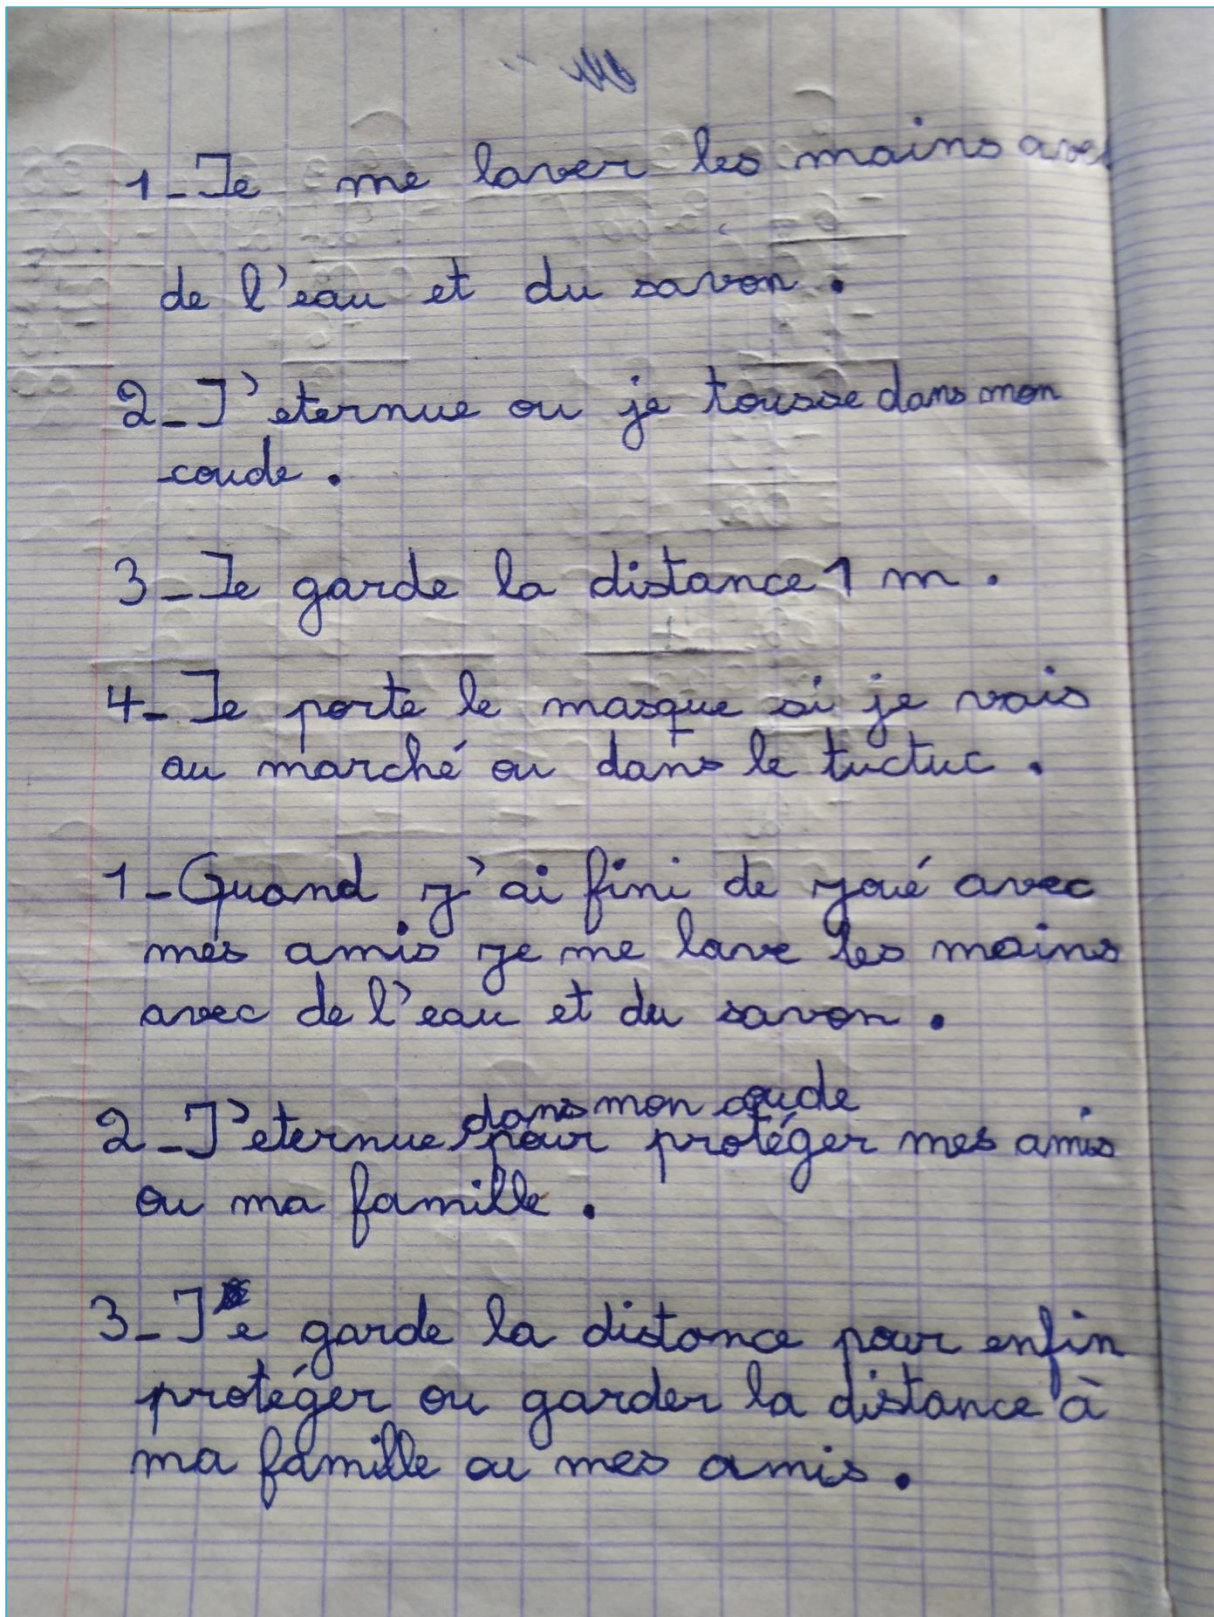 1_Je me laver les mains avec
de l'eau et du savon.
2_J'eternue ou je tousse dans mon
coude.
3_Je garde la distance 1 m.
4_Je porte le masque si je vais
au marché ou dans le tuctuc.
1_Quand j'ai fini de joué avec
mes amis je me lave les mains
avec de l'eau et du savon.
dans mon coude
2_J'eternue pour protéger mes amis
ou ma famille.
3_Je garde la distance pour enfin
protéger ou garder la distance à
ma famille ou mes amis.